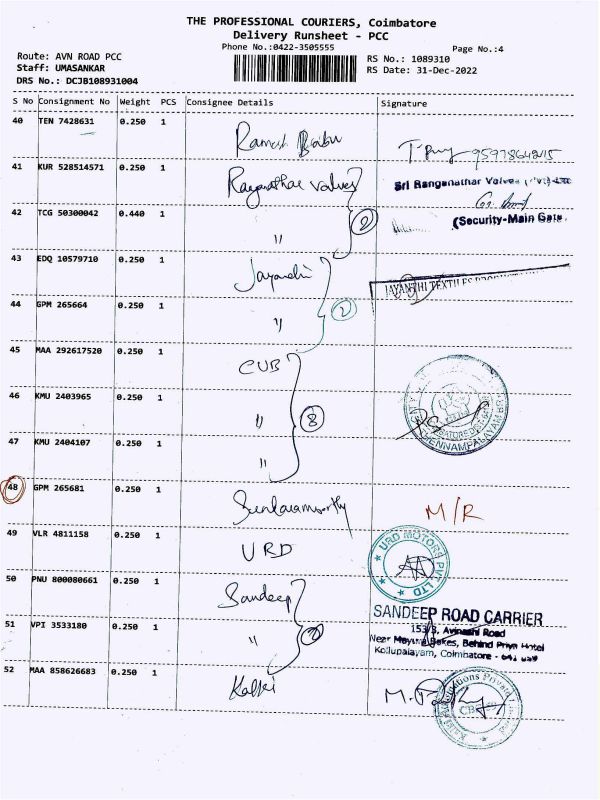 THE PROFESSIONAL COURIERS, Coimbatore
Delivery Runsheet - PCC
Phone No.:0422-3505555
Page No.:4
Route: AVN ROAD PCC
Staff: UMASANKAR
DRS No.: DCJB108931004
RS No.: 1089310
RS Date: 31-Dec-2022
S No Consignment No Weight PCS Consignee Details Signature
40 TEN 7428631 0.250 1 Ramesh Babu
41 KUR 528514571 0.250 1 Ranganathar Valves Sri Ranganathar Valves
42 TCG 50300042 0.440 1 " 2 (Security-Main Gate.
43 EDQ 10579710 0.250 1 Jayanthi JAYANTHI TEXTILES
44 GPM 265664 0.250 1 " 2
45 MAA 292617520 0.250 1 CUB
46 KMU 2403965 0.250 1 " 8
47 KMU 2404107 0.250 1 "
48 GPM 265681 0.250 1 M/R
49 VLR 4811158 0.250 1 URD URD MOTORS PVT LTD
50 PNU 800080661 0.250 1 Sandeep SANDEEP ROAD CARRIER
51 VPI 3533180 0.250 1 " 153/3, Avinashi Road
Near Mayura Bakes, Behind Priya Hotel
Kollupalayam, Coimbatore -
52 MAA 858626683 0.250 1 Kalki